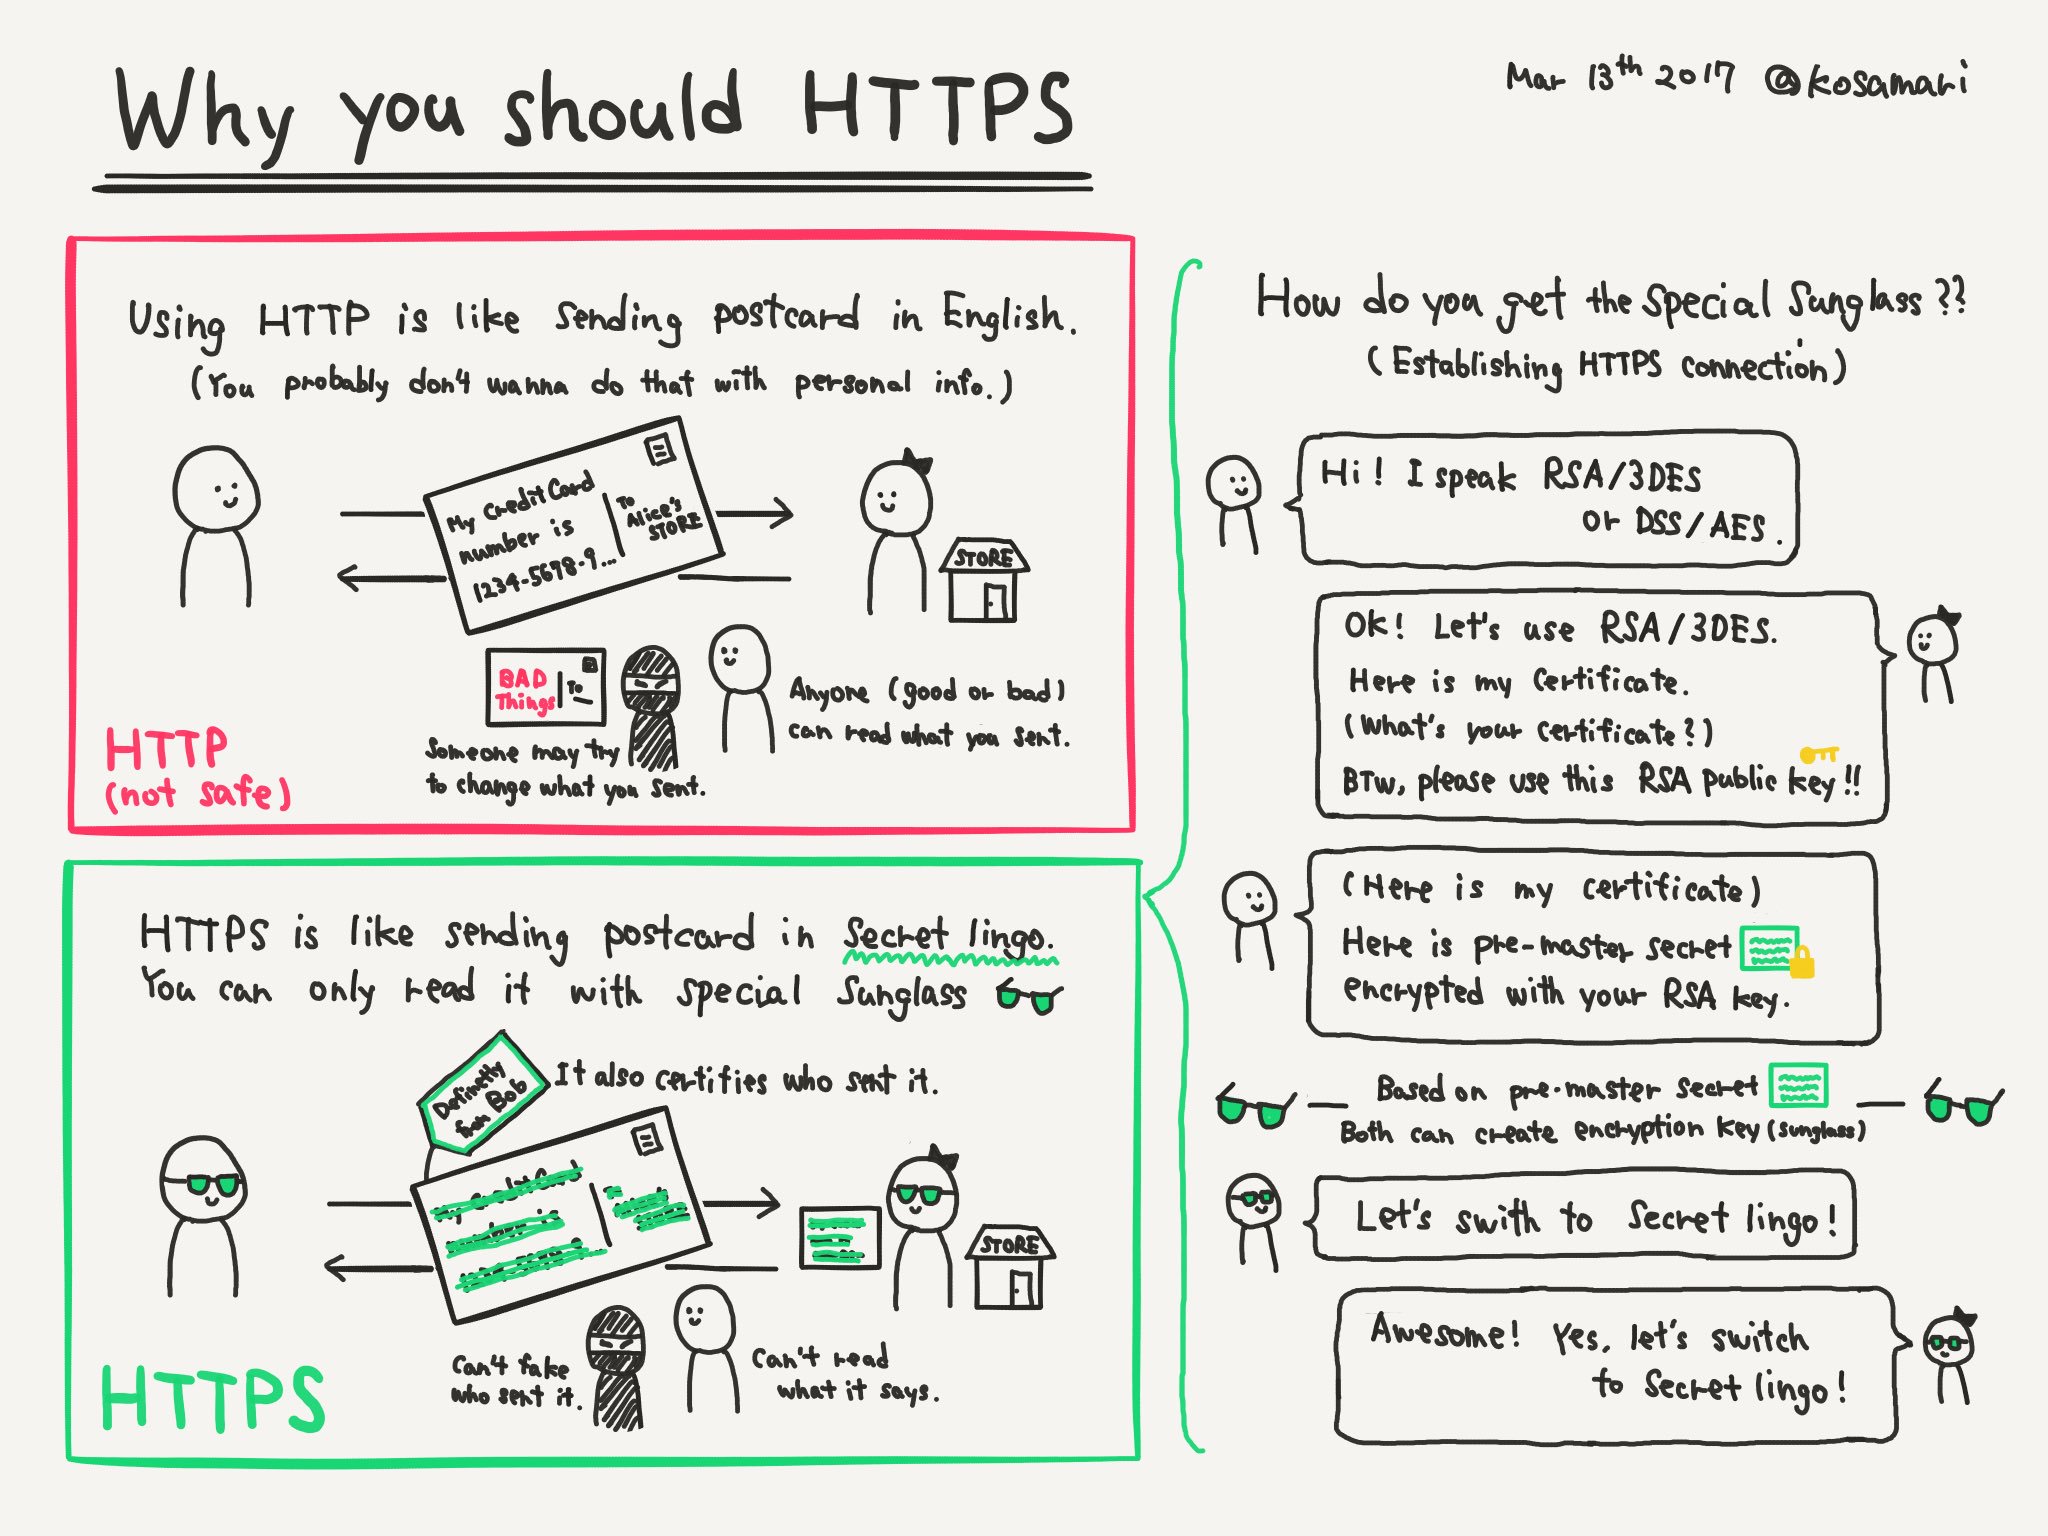 Why you should HTTPS
Mar 13th 2017 @kosamari
Using HTTP is like sending postcard in English.
(You probably don't wanna do that with personal info.)
My Credit Card
number is
1234-5678-9...
To
Alice's
STORE
STORE
BAD
Things
To
Someone may try
to change what you sent.
Anyone (good or bad)
can read what you sent.
HTTP
(not safe)
HTTPS is like sending postcard in Secret lingo.
You can only read it with special Sunglass
Definetly
from Bob
It also certifies who sent it.
STORE
Can't fake
who sent it.
Can't read
what it says.
HTTPS
How do you get the Special Sunglass??
(Establishing HTTPS connection)
Hi! I speak RSA/3DES
or DSS/AES.
Ok! Let's use RSA/3DES.
Here is my Certificate.
(What's your certificate?)
BTW, please use this RSA public key!!
(Here is my certificate)
Here is pre-master secret
encrypted with your RSA key.
Based on pre-master secret
Both can create encryption key (sunglass)
Let's swith to Secret lingo!
Awesome! Yes, let's switch
to Secret lingo!